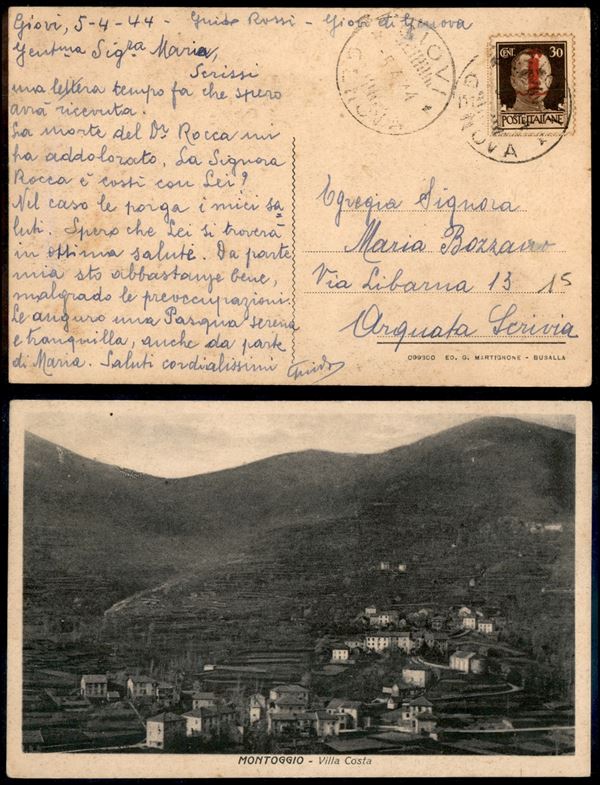 Giovi, 5-4-44 - Guido Rossi - Giovi di Genova
Gent.ma Sig.ra Maria,
Scrissi
una lettera tempo fa che spero
avrà ricevuta.
La morte del Dr Rocca mi
ha addolorato. La Signora
Rocca è costì con Lei?
Nel caso le porga i miei sa=
luti. Spero che Lei si troverà
in ottima salute. Da parte
mia sto abbastanze bene,
malgrado le preoccupazioni.
Le auguro una Pasqua serena
e tranquilla, anche da parte
di Maria. Saluti cordialissimi
Guido
GIOVI
GENOVA
CENT. 30
POSTE ITALIANE
Egregia Signora
Maria Bozzano
Via Libarna 13 15
Arquata Scrivia
C99300 ED. G. MARTIGNONE - BUSALLA
MONTOGGIO - Villa Costa